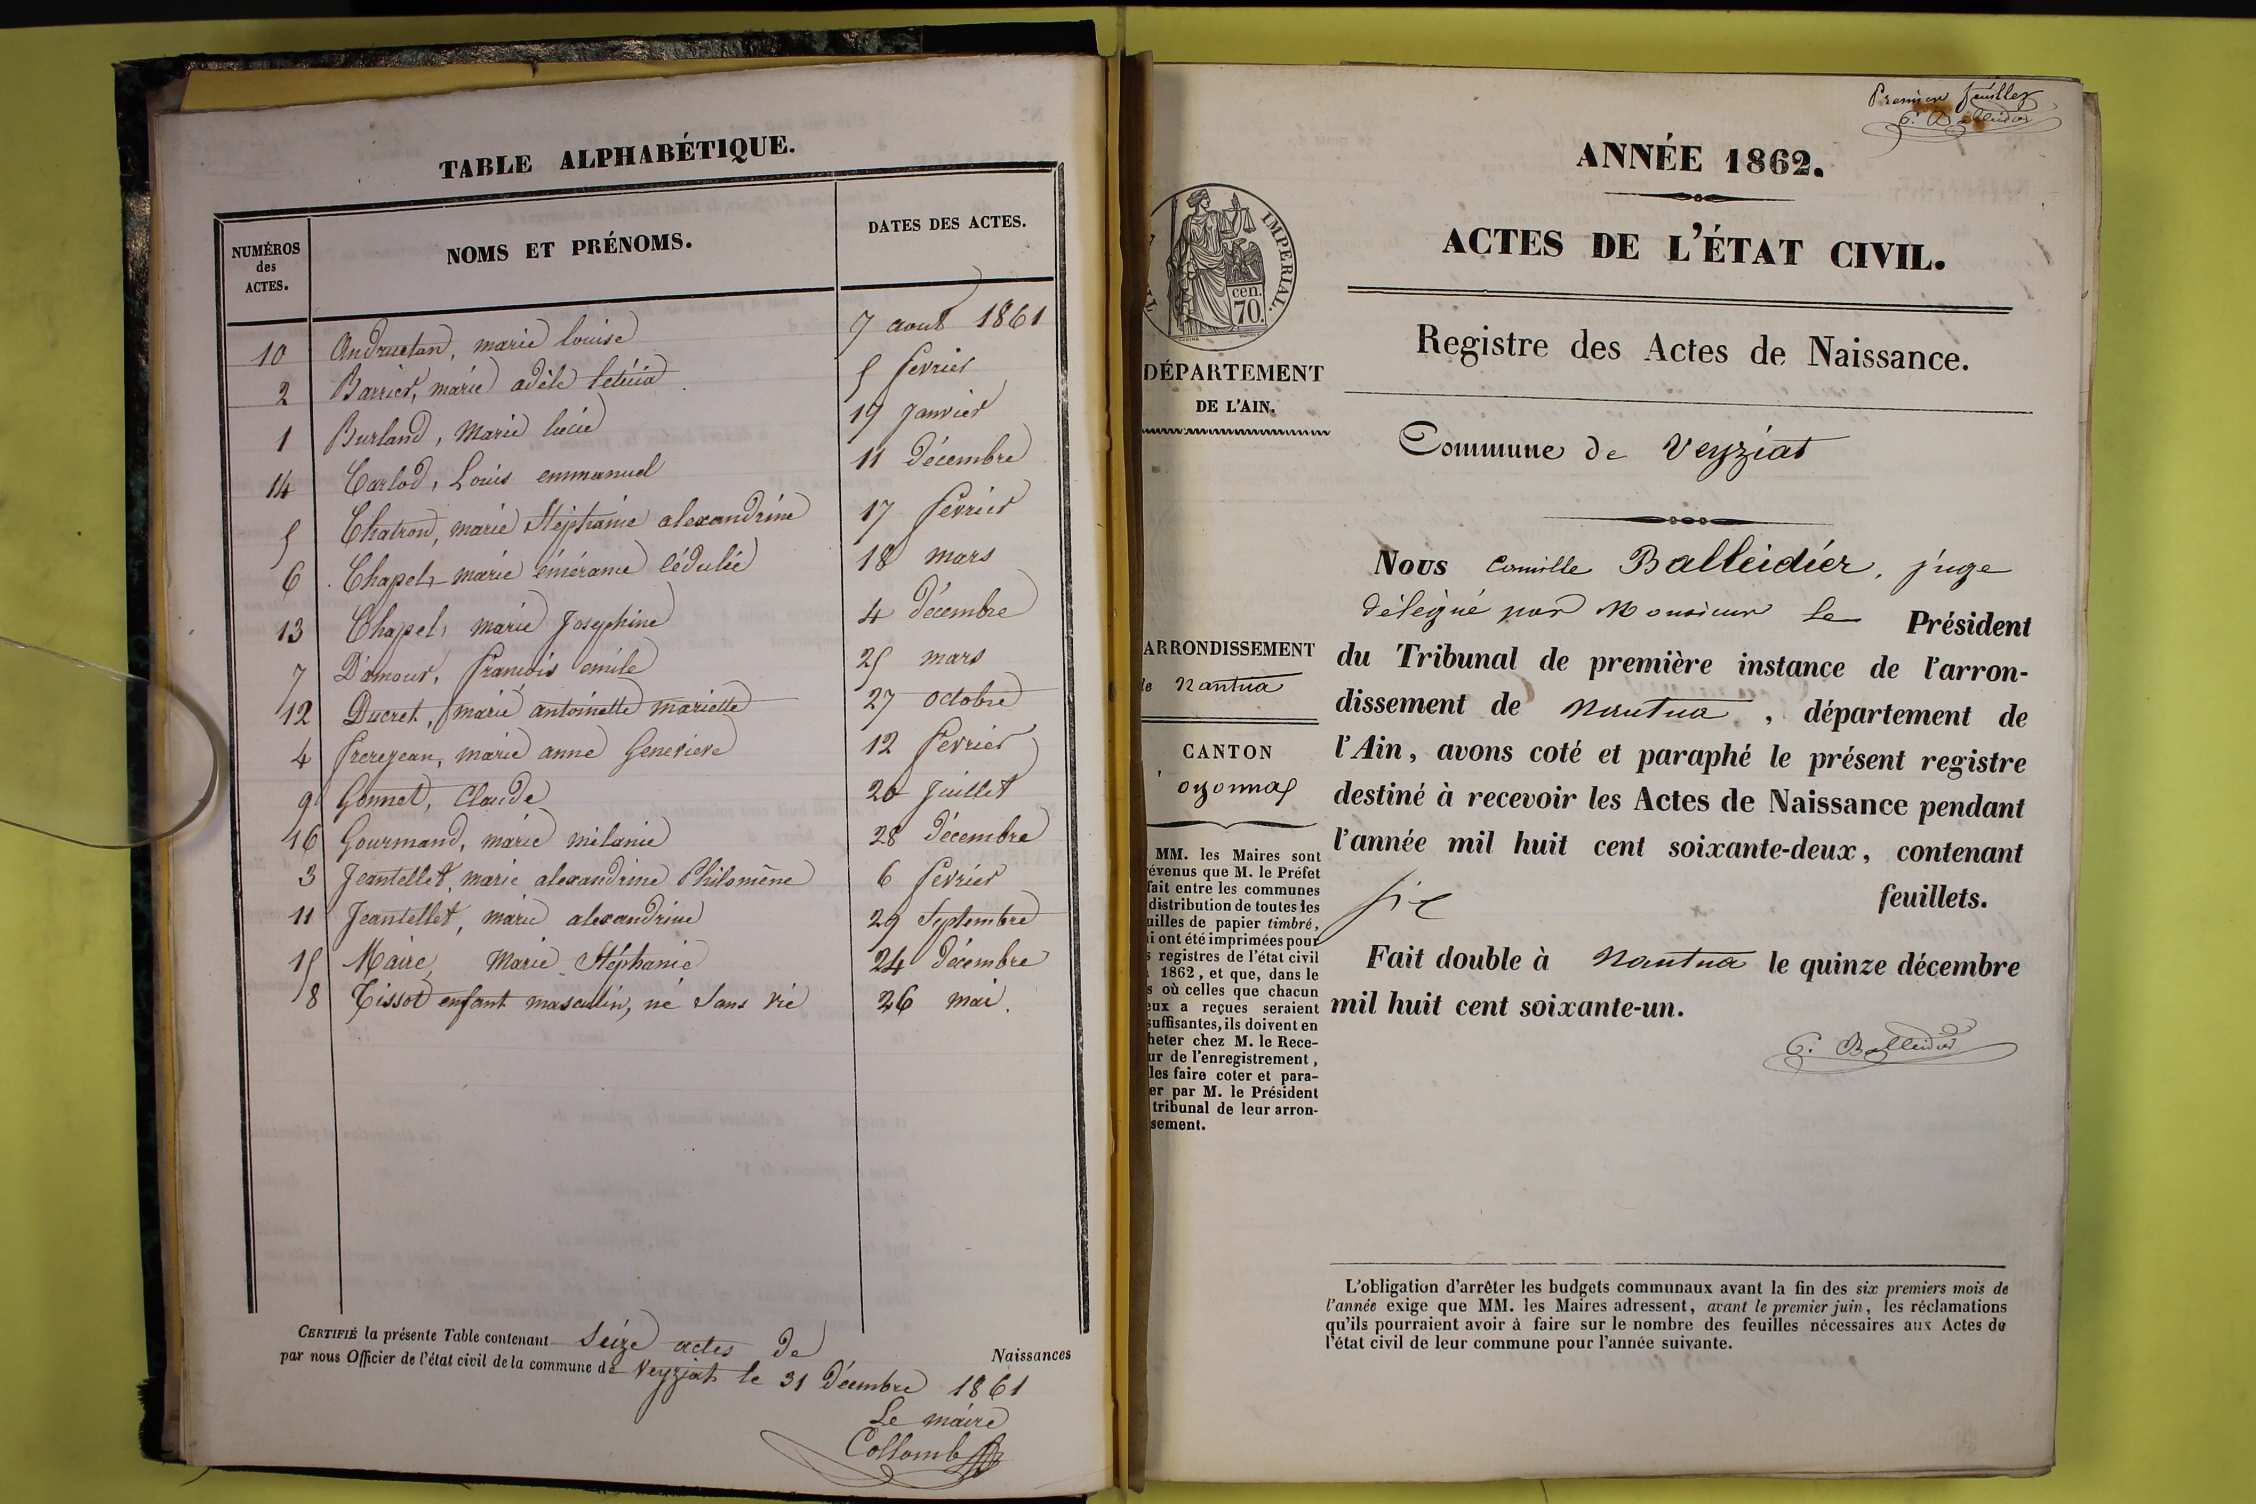 TABLE ALPHABÉTIQUE.
NUMÉROS des ACTES. NOMS ET PRÉNOMS. DATES DES ACTES.
10 Andruetan, marie louise 7 aout 1861
2 Barrier, marie adèle leticia 5 fevrier
1 Burland, Marie lucie 19 Janvier
14 Carlod, Louis emmanuel 11 décembre
5 Chatron, marie Stéphanie alexandrine 17 février
6 Chapel, marie émérance 18 mars
13 Chapel, marie Josephine 4 décembre
7 D'amour, François emile 25 mars
12 Ducret, marie antoinette mariette 27 octobre
4 frerejean, marie anne Genevieve 12 fevrier
9 Gonnet, Claude 20 Juillet
16 Gourmand, marie mélanie 28 décembre
3 Jeantellet, marie alexandrine Philomène 6 fevrier
11 Jeantellet, marie alexandrine 29 Septembre
15 Maire, Marie Stéphanie 24 décembre
8 Tissot enfant masculin, né Sans vie 26 mai.
CERTIFIÉ la présente Table contenant Seize actes de Naissances
par nous Officier de l'état civil de la commune de Veyziat le 31 Décembre 1861
Le maire
Collomb
Premier feuillet
C. Balleidier
ANNÉE 1862.
ACTES DE L'ÉTAT CIVIL.
IMPERIAL.
cen.
70.
Registre des Actes de Naissance.
DÉPARTEMENT
DE L'AIN.
Commune de Veyziat
Nous Camille Balleidier, juge
délégué par Monsieur Le Président
du Tribunal de première instance de l'arron-
dissement de Nantua, département de
l'Ain, avons coté et paraphé le présent registre
destiné à recevoir les Actes de Naissance pendant
l'année mil huit cent soixante-deux, contenant
six feuillets.
Fait double à Nantua le quinze décembre
mil huit cent soixante-un.
C. Balleidier
ARRONDISSEMENT
de Nantua
CANTON
oyonnax
MM. les Maires sont
évenus que M. le Préfet
fait entre les communes
distribution de toutes les
uilles de papier timbré,
i ont été imprimées pour
s registres de l'état civil
1862, et que, dans le
s où celles que chacun
eux a reçues seraient
suffisantes, ils doivent en
heter chez M. le Rece-
ur de l'enregistrement,
les faire coter et para-
er par M. le Président
tribunal de leur arron-
sement.
L'obligation d'arrêter les budgets communaux avant la fin des six premiers mois de
l'année exige que MM. les Maires adressent, avant le premier juin, les réclamations
qu'ils pourraient avoir à faire sur le nombre des feuilles nécessaires aux Actes de
l'état civil de leur commune pour l'année suivante.